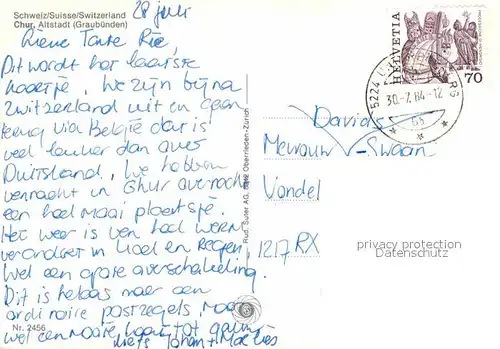 Schweiz/Suisse/Switzerland
Chur, Altstadt (Graubünden)
28 juli
Lieve Tante Rie,
Dit wordt het laatste
kaartje, we zijn bijna
Zwitzerland uit en gaan
terug via België dat is
veel leuker dan over
Duitsland, we hebben
vernacht in Chur
een heel mooi plaatsje.
Het weer is van heel warm
veranderd in koel en Regen
wel een grote
Dit is helaas maar een
ordinaire postzegels, maar
wel een mooie kaart tot gauw
liefs Johan +
Nr. 2456
Rud. Suter AG, 8942 Oberrieden-Zürich
HELVETIA
70
5224
30.-7.84-12
Davids
Meivouw - Swaan
Vondel
1217 RX
privacy protection
Datenschutz